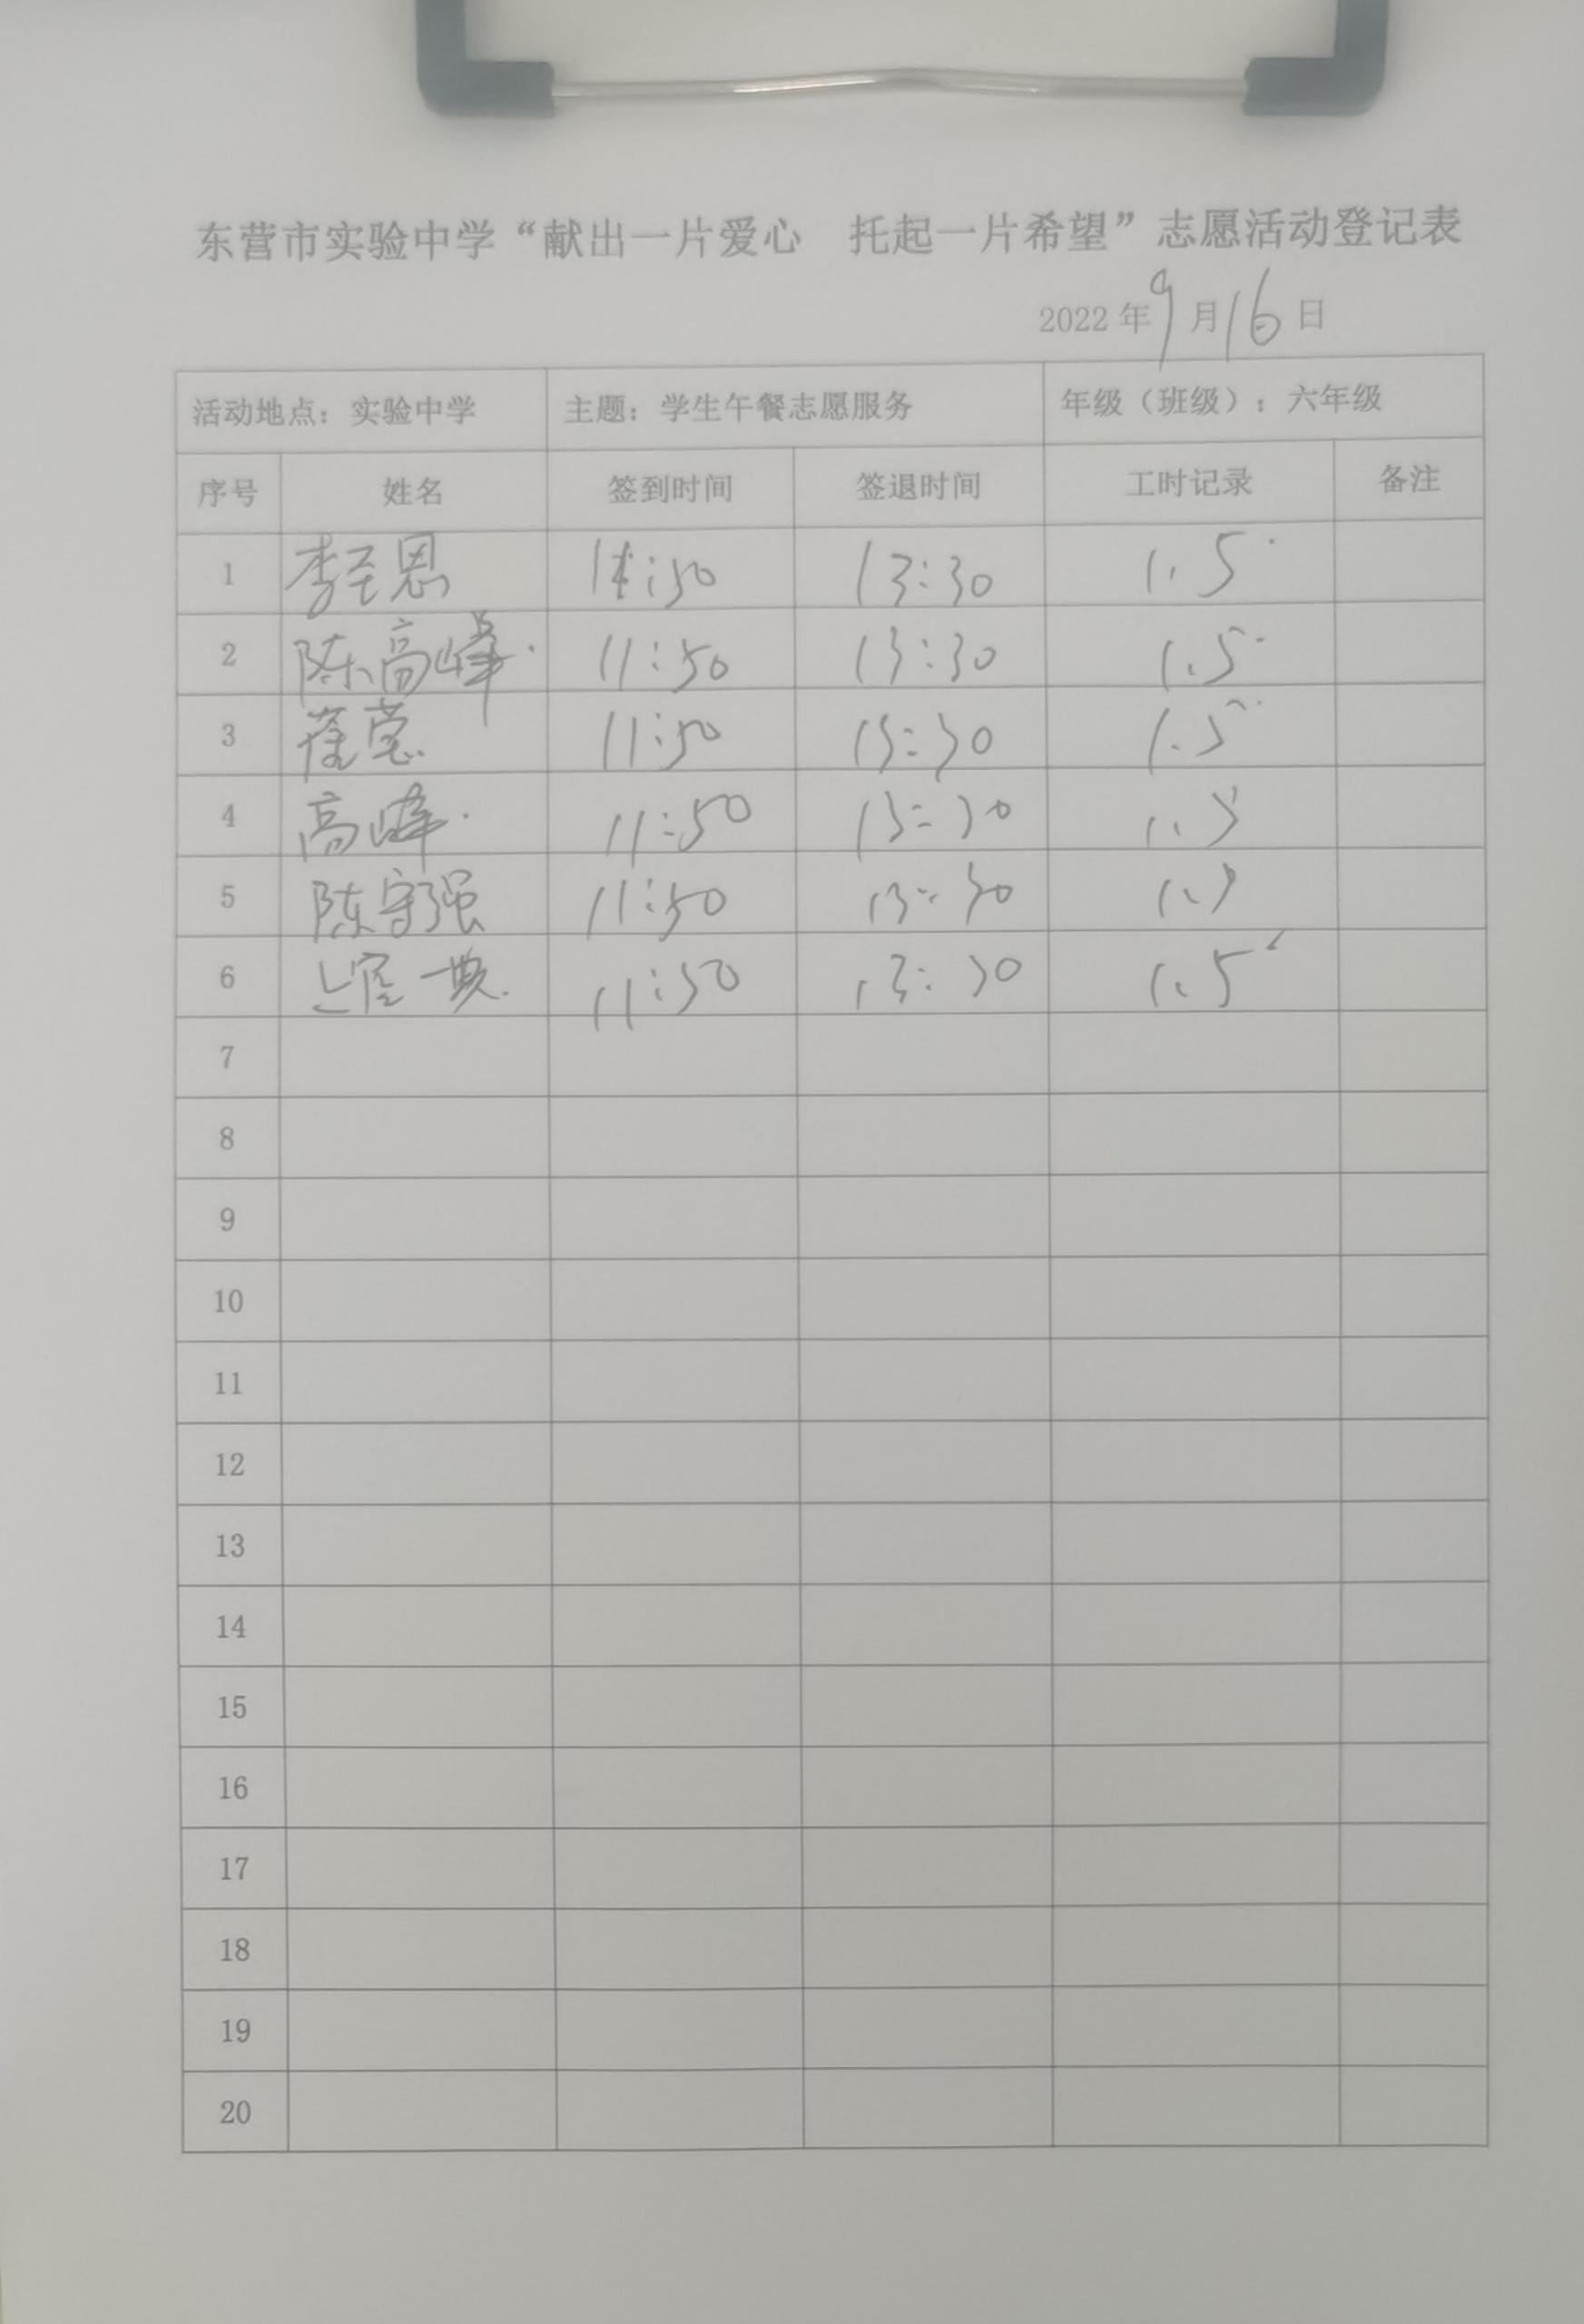 东营市实验中学“献出一片爱心 托起一片希望”志愿活动登记表
2022年9月16日
活动地点：实验中学 主题：学生午餐志愿服务 年级（班级）：六年级
序号 姓名 签到时间 签退时间 工时记录 备注
1 李至恩 11:50 13:30 1.5
2 陈高峰 11:50 13:30 1.5
3 11:50 13:30 1.5
4 高峰 11:50 13:30 1.5
5 陈守强 11:50 13:30 1.5
6 11:50 13:30 1.5
7
8
9
10
11
12
13
14
15
16
17
18
19
20